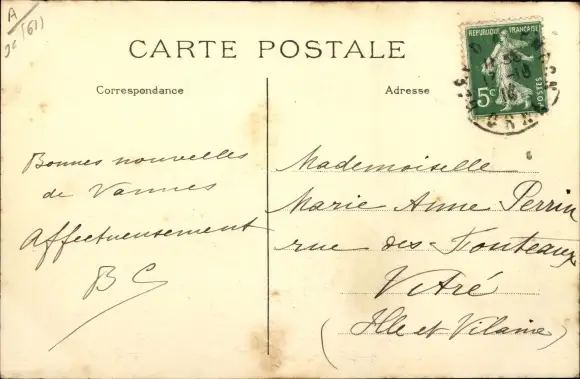 A
CARTE POSTALE
Correspondance
Adresse
REPUBLIQUE FRANÇAISE
5c
POSTES
Bonnes nouvelles
de Vannes
Affectueusement
BC
Mademoiselle
Marie Anne Perrin
rue des
Vitré
(Ille et Vilaine)